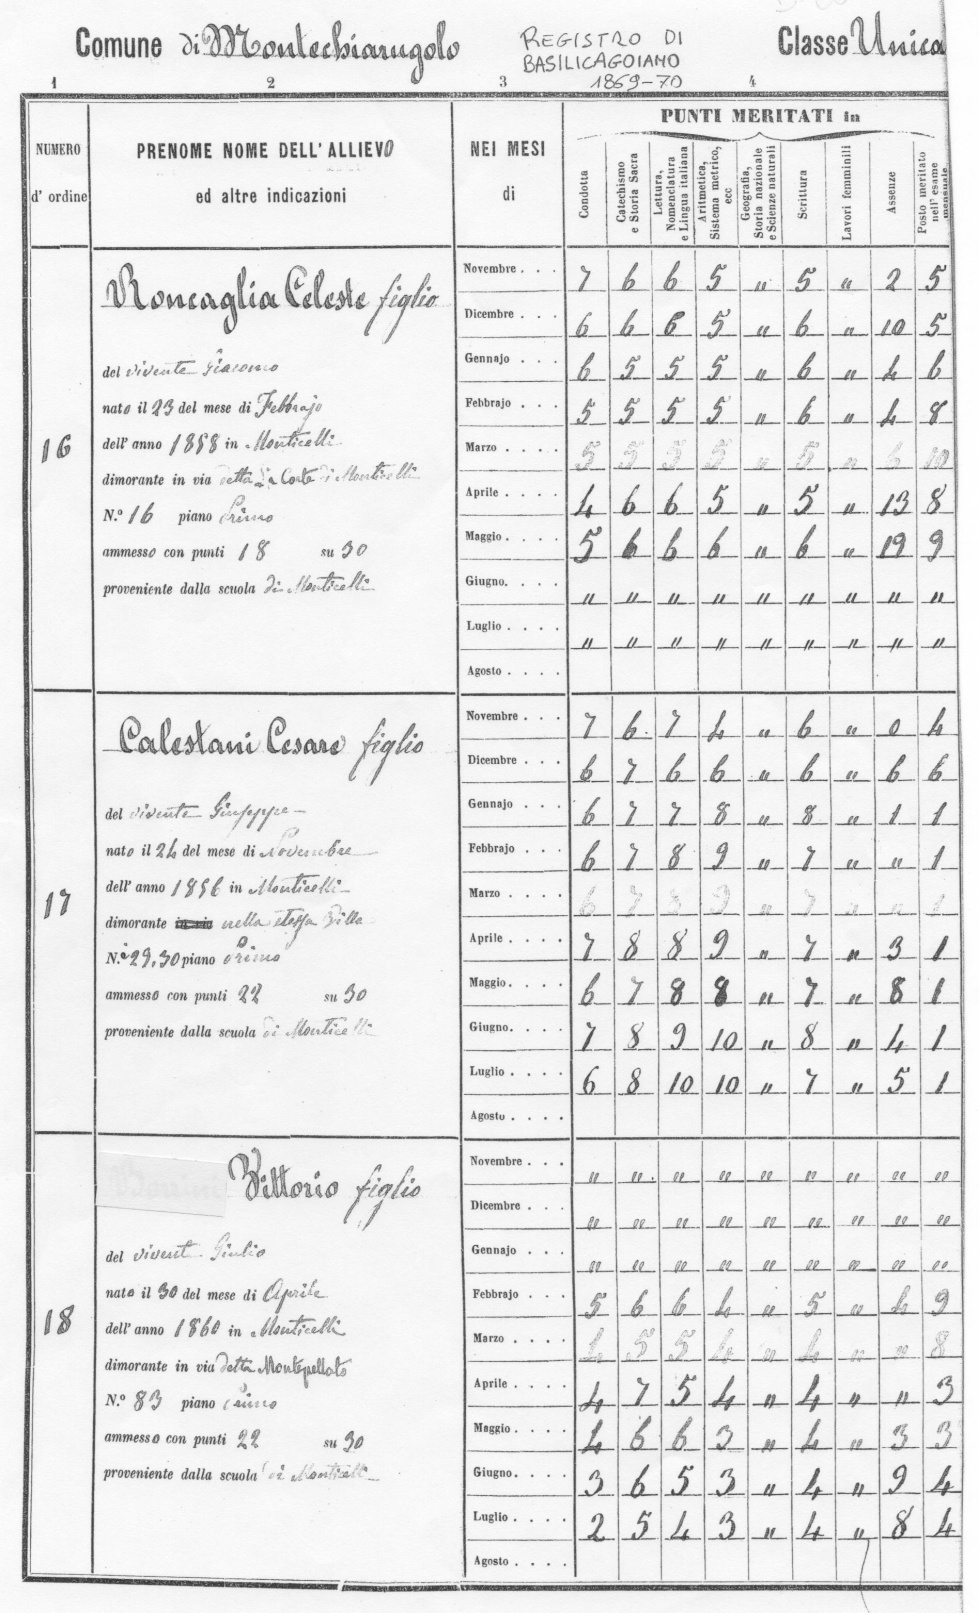 Comune di Montechiarugolo
REGISTRO DI
BASILICAGOIANO
1869-70
Classe Unica
1 2 3 4
NUMERO
d' ordine
PRENOME NOME DELL' ALLIEVO
ed altre indicazioni
NEI MESI
di
PUNTI MERITATI in
Condotta
Catechismo
e Storia Sacra
Lettura,
Nomenclatura
e Lingua italiana
Aritmetica,
Sistema metrico,
ecc
Geografia,
Storia nazionale
e Scienze naturali
Scrittura
Lavori femminili
Assenze
Posto meritato
nell' esame
mensuale
16
Roncaglia Celeste figlio
del vivente Giacomo
nato il 23 del mese di Febbrajo
dell' anno 1858 in Monticelli
dimorante in via detta la Corte di Monticelli
N.° 16 piano Primo
ammesso con punti 18 su 30
proveniente dalla scuola di Monticelli
Novembre . . . 7 6 6 5 " 5 " 2 5
Dicembre . . . 6 6 6 5 " 6 " 10 5
Gennajo . . . 6 5 5 5 " 6 " 4 6
Febbrajo . . . 5 5 5 5 " 6 " 4 8
Marzo . . . . 5 5 5 5 " 5 " 10
Aprile . . . . 4 6 6 5 " 5 " 13 8
Maggio . . . . 5 6 6 6 " 6 " 19 9
Giugno. . . . " " " " " " " " "
Luglio . . . . " " " " " " " " "
Agosto . . . .
17
Calestani Cesare figlio
del vivente Giuseppe
nato il 24 del mese di Novembre
dell' anno 1856 in Monticelli
dimorante in via nella stessa Villa
N.i 29.30 piano Primo
ammesso con punti 22 su 30
proveniente dalla scuola di Monticelli
Novembre . . . 7 6 7 4 " 6 " 0 4
Dicembre . . . 6 7 6 6 " 6 " 6 6
Gennajo . . . 6 7 7 8 " 8 " 1 1
Febbrajo . . . 6 7 8 9 " 7 " " 1
Marzo . . . . 6 7 8 9 " 7 " " 1
Aprile . . . . 7 8 8 9 " 7 " 3 1
Maggio. . . . 6 7 8 8 " 7 " 8 1
Giugno. . . . 7 8 9 10 " 8 " 4 1
Luglio . . . . 6 8 10 10 " 7 " 5 1
Agosto . . . .
18
Vittorio figlio
del vivente Giulio
nato il 30 del mese di Aprile
dell' anno 1860 in Monticelli
dimorante in via detta Montepellato
N.° 83 piano Primo
ammesso con punti 22 su 30
proveniente dalla scuola di Monticelli
Novembre . . . " " " " " " " " "
Dicembre . . . " " " " " " " " "
Gennajo . . . " " " " " " " " "
Febbrajo . . . 5 6 6 4 " 5 " 4 9
Marzo . . . . 4 5 5 4 " 4 " " 8
Aprile . . . . 4 7 5 4 " 4 " " 3
Maggio . . . . 4 6 6 3 " 4 " 3 3
Giugno. . . . 3 6 5 3 " 4 " 9 4
Luglio . . . . 2 5 4 3 " 4 " 8 4
Agosto . . . .